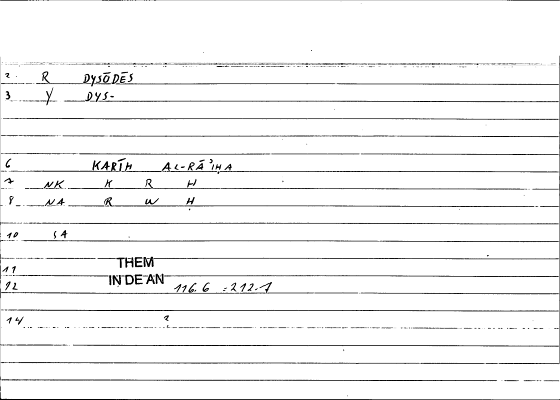 2 R DYSŌDĒS
3 Y DYS-
6 KARĪH AL-RĀʾIḤA
7 NK K R H
8 NA R W Ḥ
10 SA
11 THEM
12 IN DE AN 116.6 = 212.7
14 2